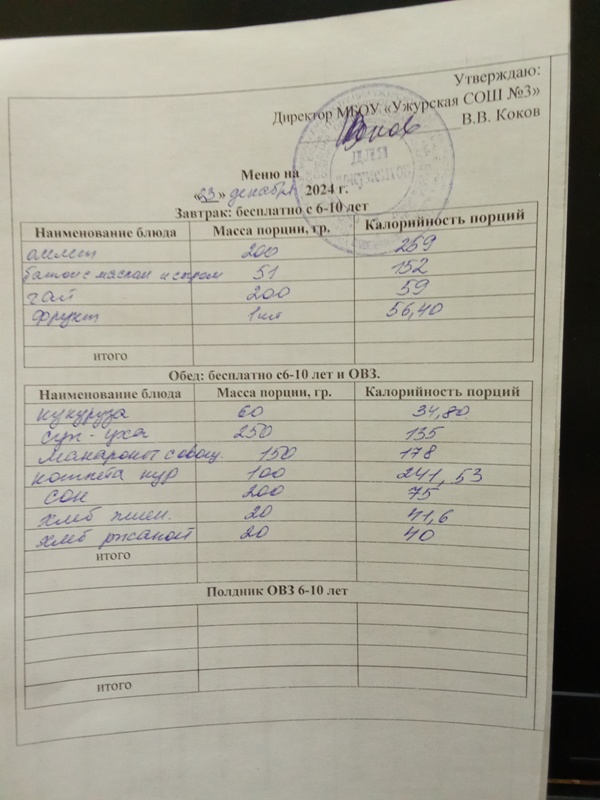 Утверждаю:
Директор МБОУ «Ужурская СОШ №3»
В.В. Коков
для
документов
Меню на
«23» декабря 2024 г.
Завтрак: бесплатно с 6-10 лет
Наименование блюда Масса порции, гр. Калорийность порций
омлет 200 259
батон с маслом и сыром 51 152
чай 200 59
фрукт 1шт 56,40
итого
Обед: бесплатно с6-10 лет и ОВЗ.
Наименование блюда Масса порции, гр. Калорийность порций
кукуруза 60 34,80
суп-уха 250 135
макароны с овощ. 150 178
котлета кур 100 241,53
сок 200 75
хлеб пшен. 20 41,6
хлеб ржаной 20 40
итого
Полдник ОВЗ 6-10 лет
итого